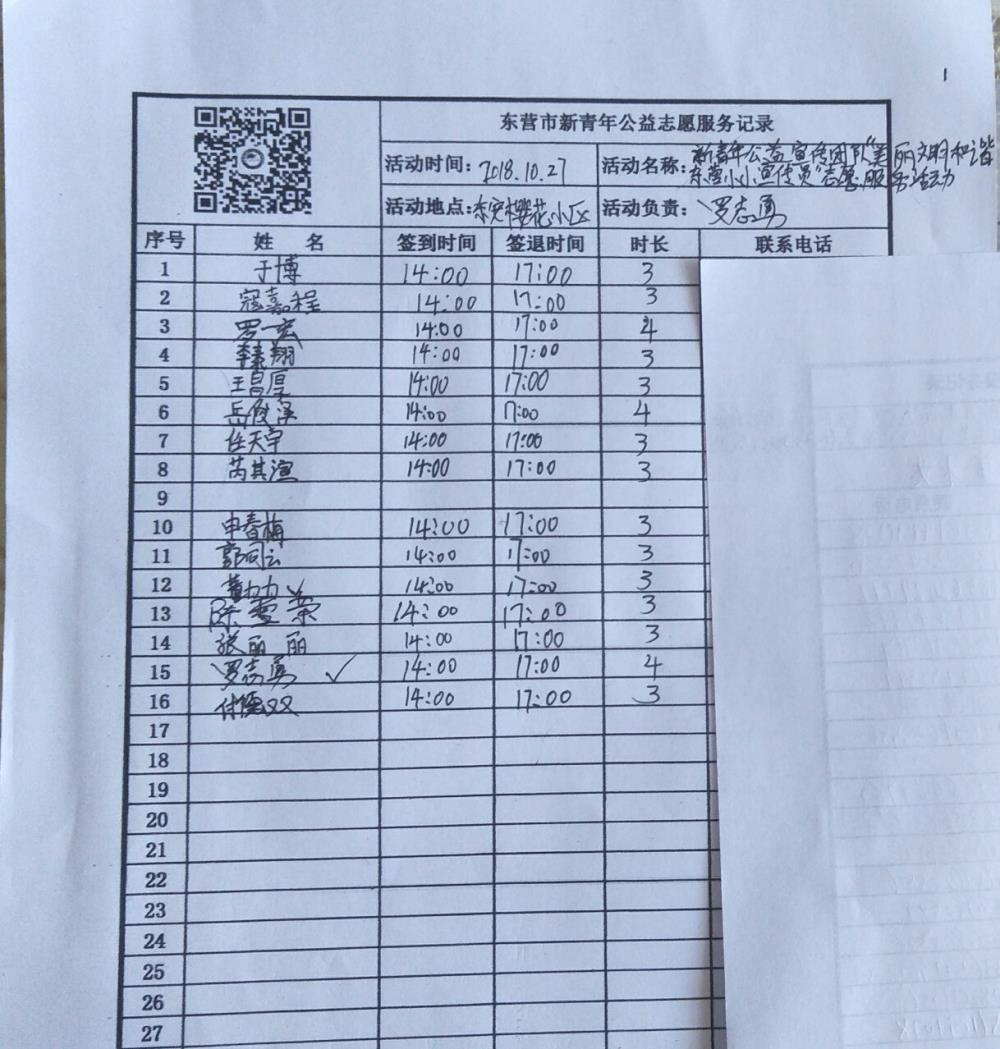 1
东营市新青年公益志愿服务记录
活动时间: 2018.10.27 活动名称: 新青年公益宣传团队"美丽文明和谐
东营小小宣传员"志愿服务活动
活动地点: 东安樱花小区 活动负责: 罗志勇
序号 姓 名 签到时间 签退时间 时长 联系电话
1 于博 14:00 17:00 3
2 寇嘉程 14:00 17:00 3
3 罗一宏 14:00 17:00 4
4 李素翔 14:00 17:00 3
5 王昌厚 14:00 17:00 3
6 岳俊 14:00 17:00 4
7 任天宇 14:00 17:00 3
8 芮其渲 14:00 17:00 3
9
10 申春梅 14:00 17:00 3
11 郭同云 14:00 17:00 3
12 董力力 14:00 17:00 3
13 陈雪荣 14:00 17:00 3
14 张丽丽 14:00 17:00 3
15 罗志勇 ✓ 14:00 17:00 4
16 付双 14:00 17:00 3
17
18
19
20
21
22
23
24
25
26
27